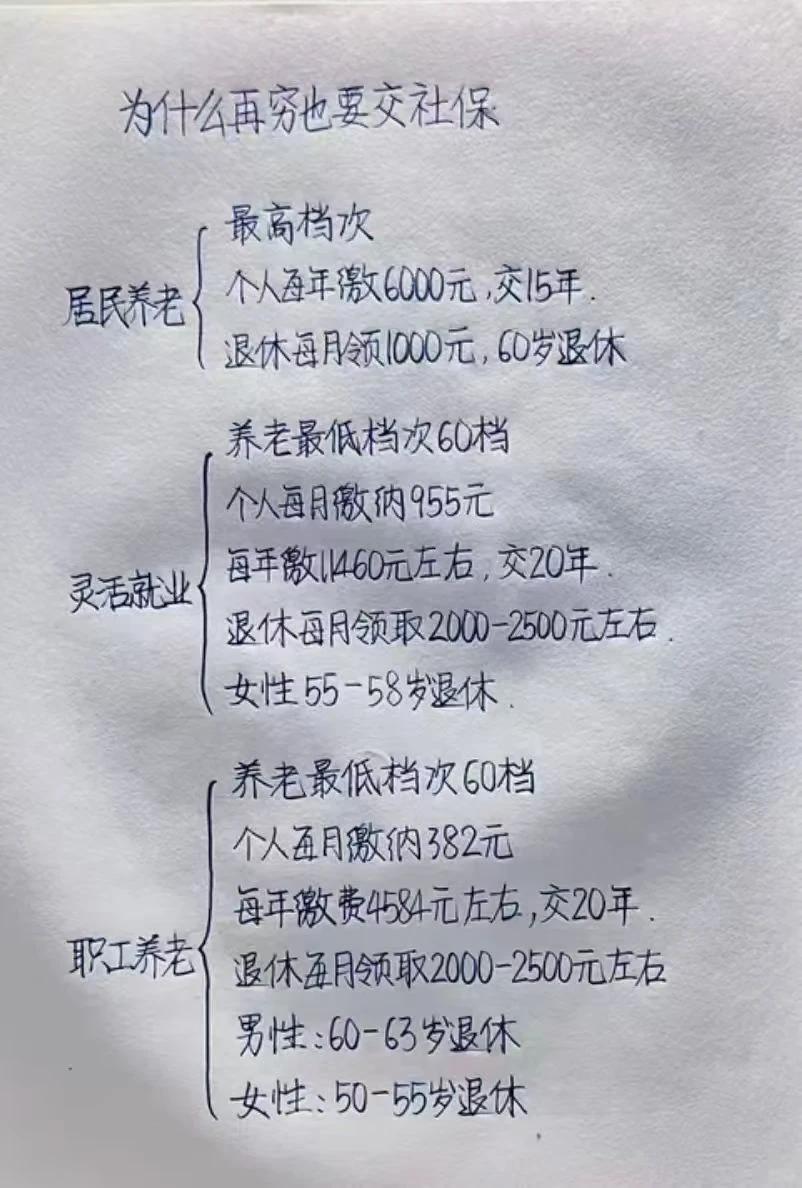 为什么再穷也要交社保
居民养老
最高档次
个人每年缴6000元,交15年.
退休每月领1000元,60岁退休
灵活就业
养老最低档次60档
个人每月缴纳955元
每年缴11460元左右,交20年.
退休每月领取2000-2500元左右.
女性55-58岁退休.
职工养老
养老最低档次60档
个人每月缴纳382元
每年缴费4584元左右,交20年.
退休每月领取2000-2500元左右
男性:60-63岁退休
女性:50-55岁退休